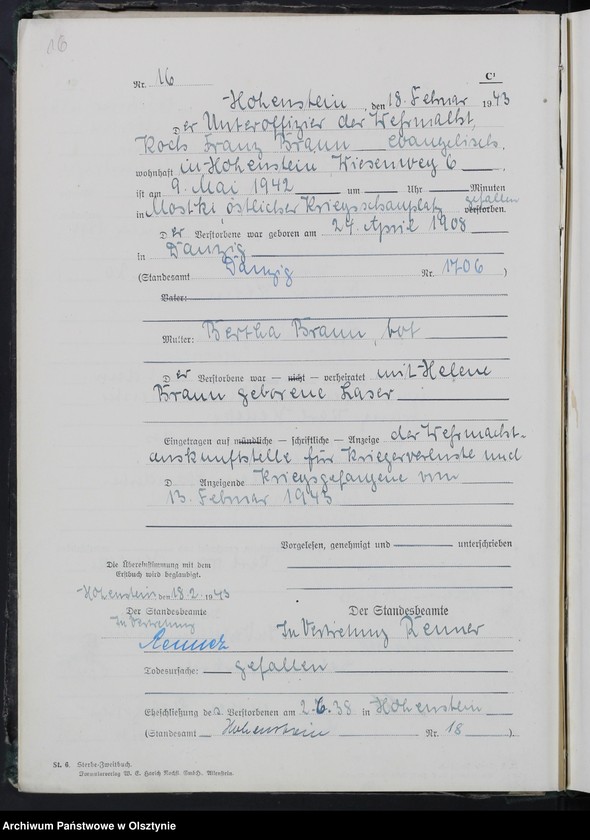 16
Nr. 16
C¹
Hohenstein, den 18. Februar 1943
Der Unteroffizier der Wehrmacht,
Koch Franz Braun evangelisch,
wohnhaft in Hohenstein, Wiesenweg 6,
ist am 9. Mai 1942 um Uhr Minuten
in Mostki östlicher Kriegsschauplatz gefallen verstorben.
Der Verstorbene war geboren am 24. April 1908
in Danzig
(Standesamt Danzig Nr. 1706)
Vater:
Mutter: Bertha Braun, tot
Der Verstorbene war — nicht — verheiratet mit Helene
Braun geborene Laser
Eingetragen auf mündliche — schriftliche — Anzeige der Wehrmacht-
auskunftstelle für Kriegerverluste und
D Anzeigende Kriegsgefangene vom
13. Februar 1943
Vorgelesen, genehmigt und unterschrieben
Die Übereinstimmung mit dem
Erstbuch wird beglaubigt.
Hohenstein den 18.2.1943
Der Standesbeamte
In Vertretung
Renner
Der Standesbeamte
In Vertretung Renner
Todesursache: gefallen
Eheschließung des Verstorbenen am 2.6.38 in Hohenstein
(Standesamt Hohenstein Nr. 18).
St. 6. Sterbe-Zweitbuch.
W. E. Harich Nachf. GmbH. Allenstein.
Archiwum Państwowe w Olsztynie